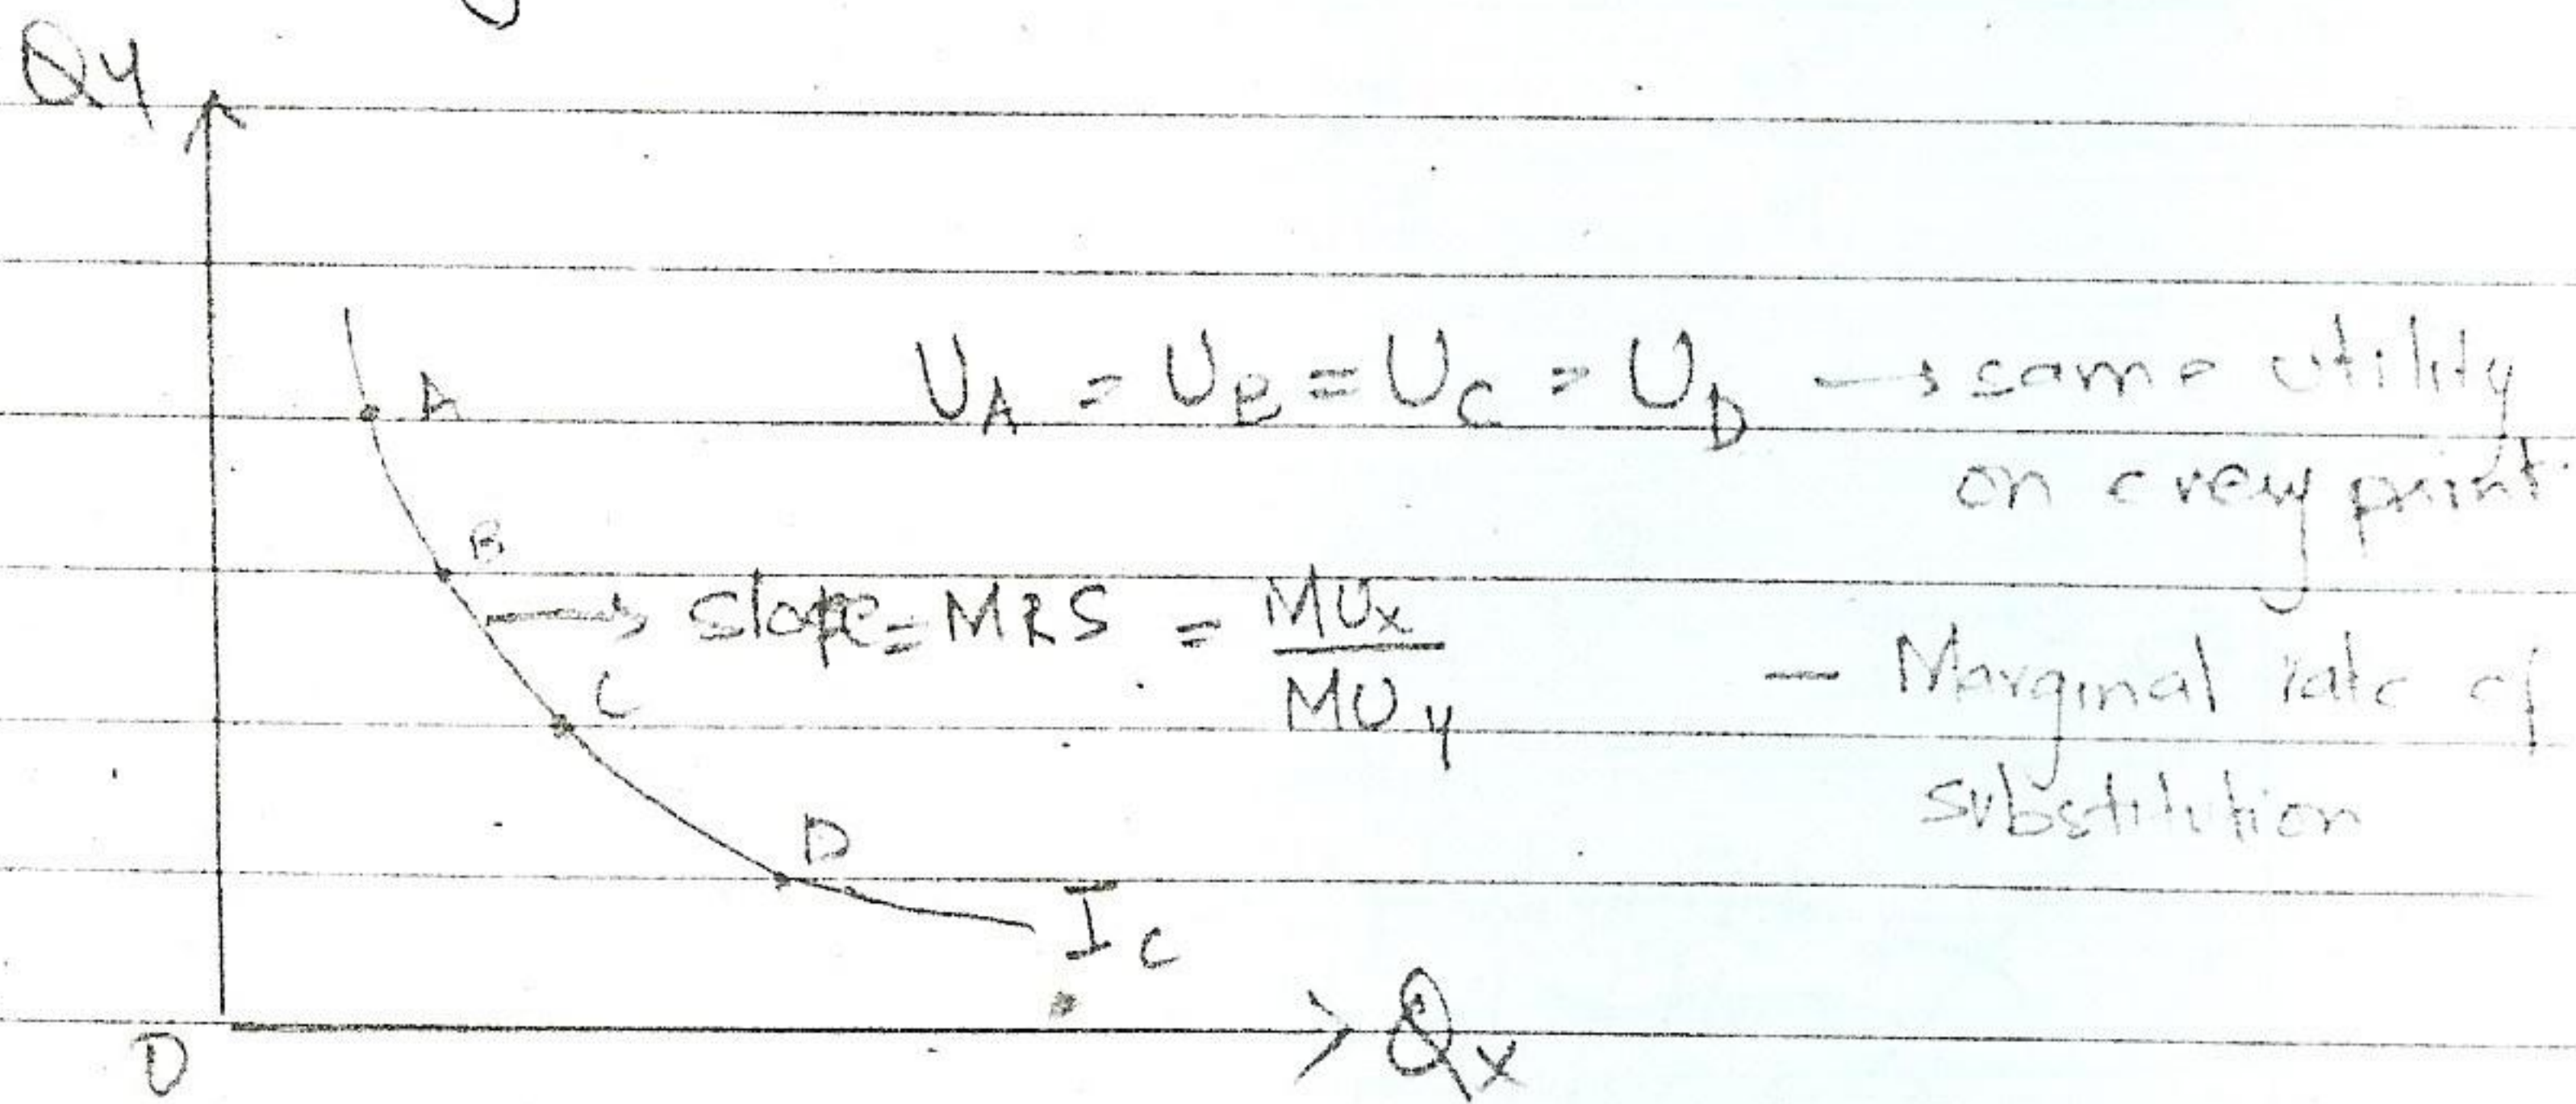 Qy
A
U_A = U_B = U_C = U_D → same utility
on every point
B
→ slope = MRS = MUx / MUy — Marginal rate of
substitution
C
D
Ic
O
Qx